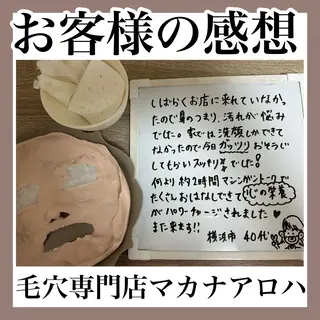 お客様の感想
しばらくお店に来れていなか。
たので鼻のつまり、汚れが悩み
でした。家では洗顔しかできて
なかったので今回ガッツリおそうじ
してもらいスッキリでした!
何より約2時間マンガントークで
たくさんおはなしできて心の栄養
がパワーチャージされました
また来ます!!
横浜市 40代
毛穴専門店マカナアロハ